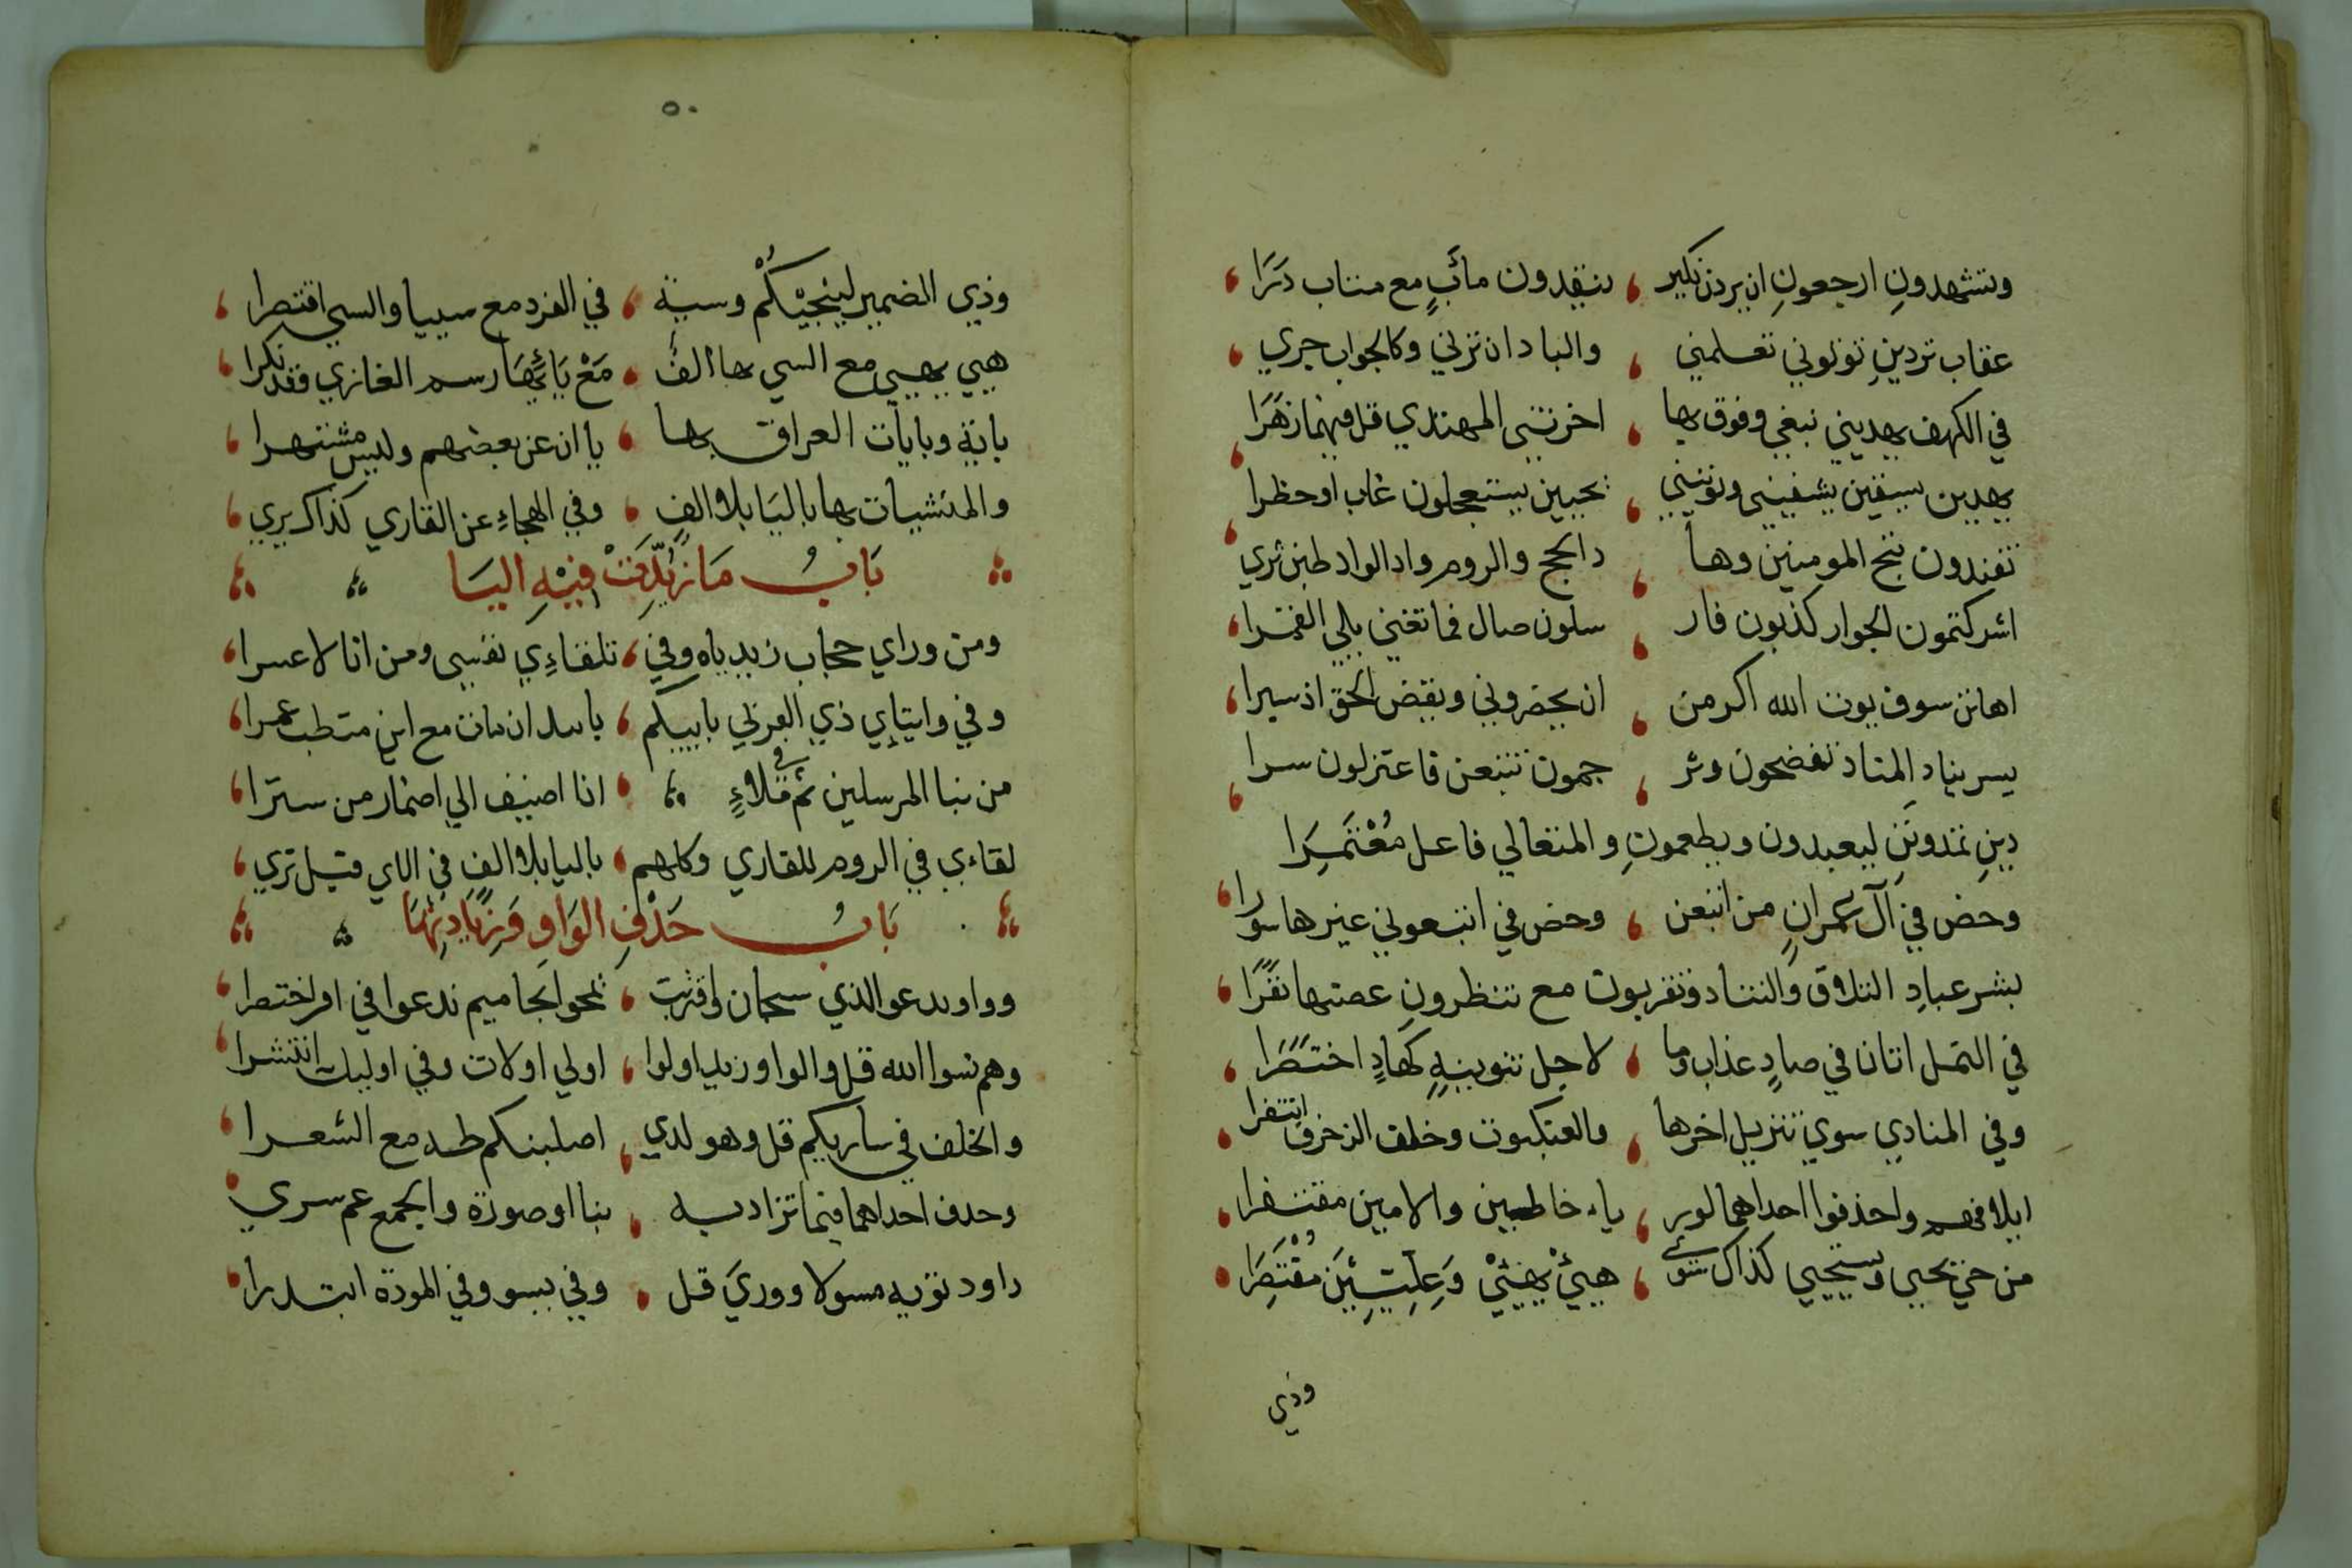 وتشهدون ارجعون ان يردن نكير ، ينقذون مآب مع متاب ذرا ،
عقاب تردين تؤتوني تعلمني ، والباد ان ترني وكالجواب جري ،
في الكهف يهديني نبغي وفوق بها ، اخرتني المهتدي قل فيهما زهرا ،
يهدين يسقين يشفيني وتؤتيني ، يحيين يستعجلون غاب او حظرا ،
تفندون ننج المومنين وها ، د الحج والروم واد الواد طبن ثري
اشركتمون الجوار كذبون فار ، سلون صال فما تغني يلي القمرا ،
اهانن سوف يوت الله اكرمن ، ان يحضروني ويقض الحق اذ سبرا ،
يسر يناد المناد تفضحون وتر ، جمون تتبعن فاعتزلون سرا ،
دين تمدونن ليعبدون ويطعمون والمتعالي فاعل معتمرا
وخص في آل عمران من اتبعن ، وخص في اتبعوني غيرها سورا ،
بشر عباد التلاق والتناد وتقربون مع تنظرون غصنها نضرا ،
في النمل اتان في صاد عذاب وما ، لاجل تنوينه كهاد اختصرا ،
وفي المنادي سوي تنزيل اخرها ، والعنكبوت وخلف الزخرف انتقرا ،
ايلافهم واحذفوا احداهما لور ، ياء خاطيين والاميين مقتفرا ،
من حي يحيي ويستحيي كذاك سوي ، هيئ يهيئ وعليين مقتصرا ،
وذي
٥٠
وذي الضمير ليحييكم وسيئة ، في الفرد مع سييا والسيي اقتصرا ،
هيي يهيي مع السيي بها الف ، مع يائها رسم الغازي وقد نكرا ،
باية وبايات العراق بها ، يا ان عن بعضهم وليس مشتهرا ،
والمنشيات بها باليا بلا الف ، وفي الهجاء عن الغازي كذاك يري ،
باب ما زيدت فيه اليا
ومن وراي حجاب زيد ياه وفي ، تلقاءي نفسي ومن انا لا عسرا ،
وفي وايتاي ذي القربي باييكم ، باييد ان مات مع اين متطب عمرا ،
من نبا المرسلين ثم في ملاء ، اذا اضيف الي اضمار من سترا ،
لقاءي في الروم للغازي وكلهم ، باليا بلا الف في الاي قبل تري ،
باب حذف الواو وزيادتها
وواو يدعو الذي سبحان واقتربت ، يمحو بحاميم ندعوا في اقرا اختصرا ،
وهم نسوا الله قل والواو زيد اولوا ، اولي اولات وفي اوليك انتشرا ،
والخلف في ساريكم قل وهو لدي ، اصلبنكم طه مع الشعرا ،
وحذف احداهما فيما تزاد به ، بنا او صورة والجمع عم سري
داود تؤيه مسولا ووري قل ، وفي يسوو وفي المودة ابتدرا ،